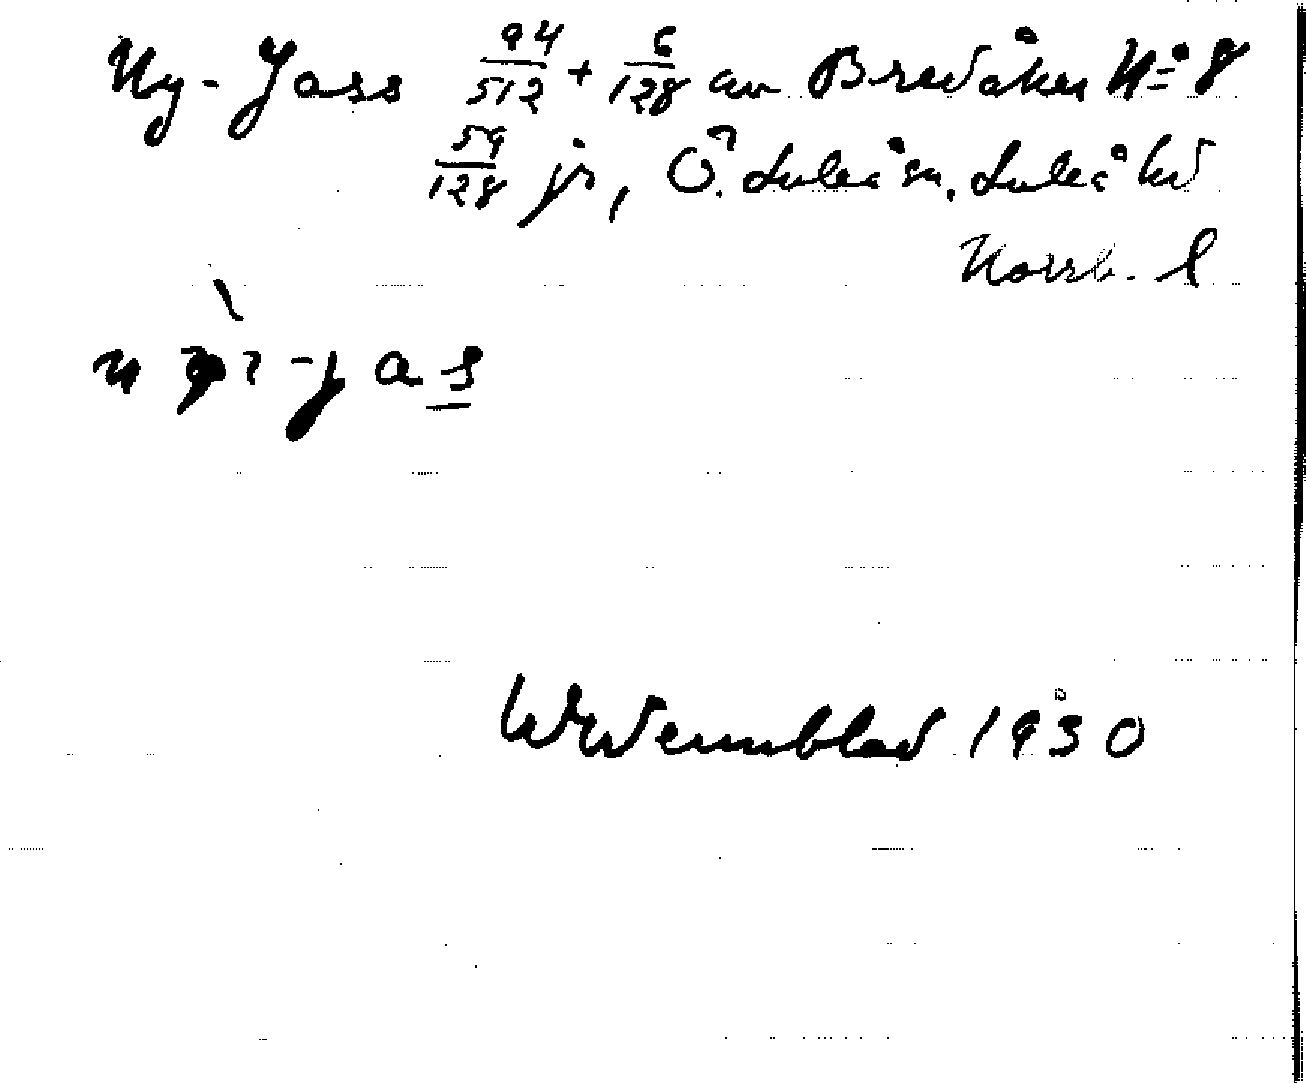 Ny-Jass 94/512 + 6/128 av Bredåker No 8
59/128 jr, Ö. Luleå sn. Luleå hd
Norrb. l
-jas
Wdennblad 1930